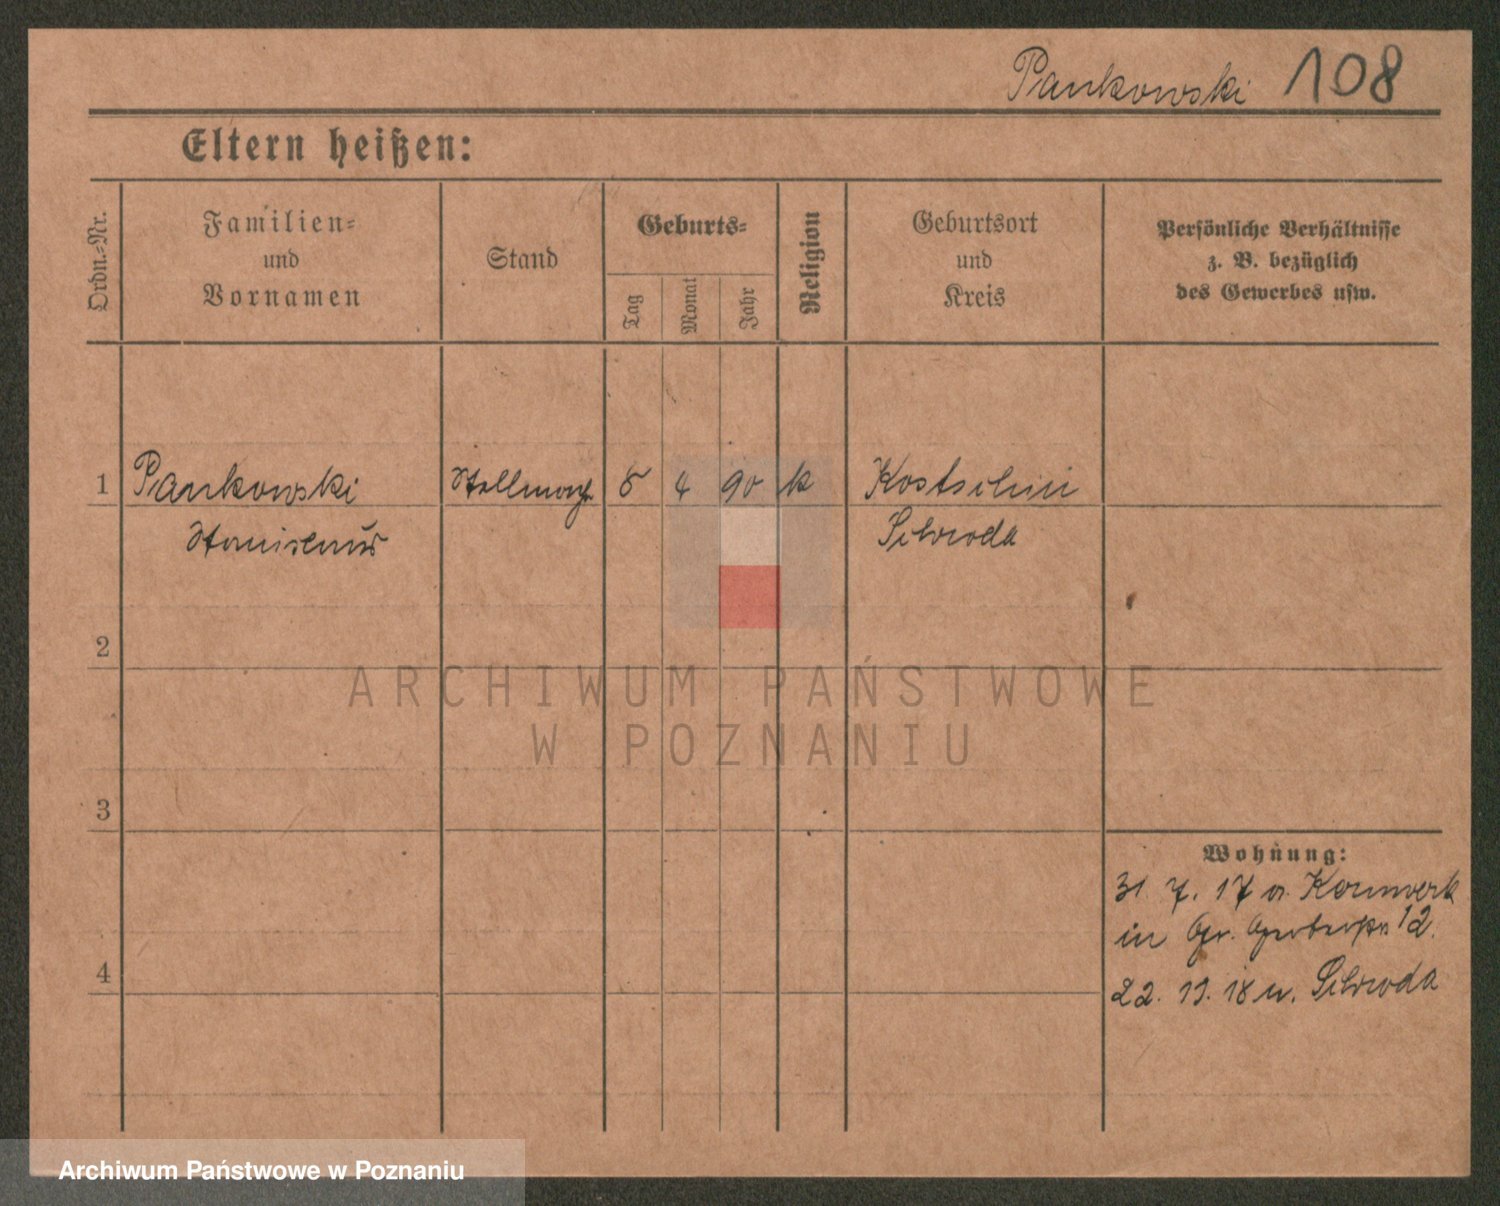 Pankowski 108
Eltern heißen:
Ordn.-Nr.
Familien-
und
Vornamen
Stand
Geburts-
Tag
Monat
Jahr
Religion
Geburtsort
und
Kreis
Persönliche Verhältnisse
z. B. bezüglich
des Gewerbes usw.
1 Pankowski 4 90 k
Schroda
2
3
4
Wohnung:
31. 7. 17 a. Kernwerk
in Gr. 12.
22. 18 n. Schroda
ARCHIWUM PAŃSTWOWE
W POZNANIU
Archiwum Państwowe w Poznaniu